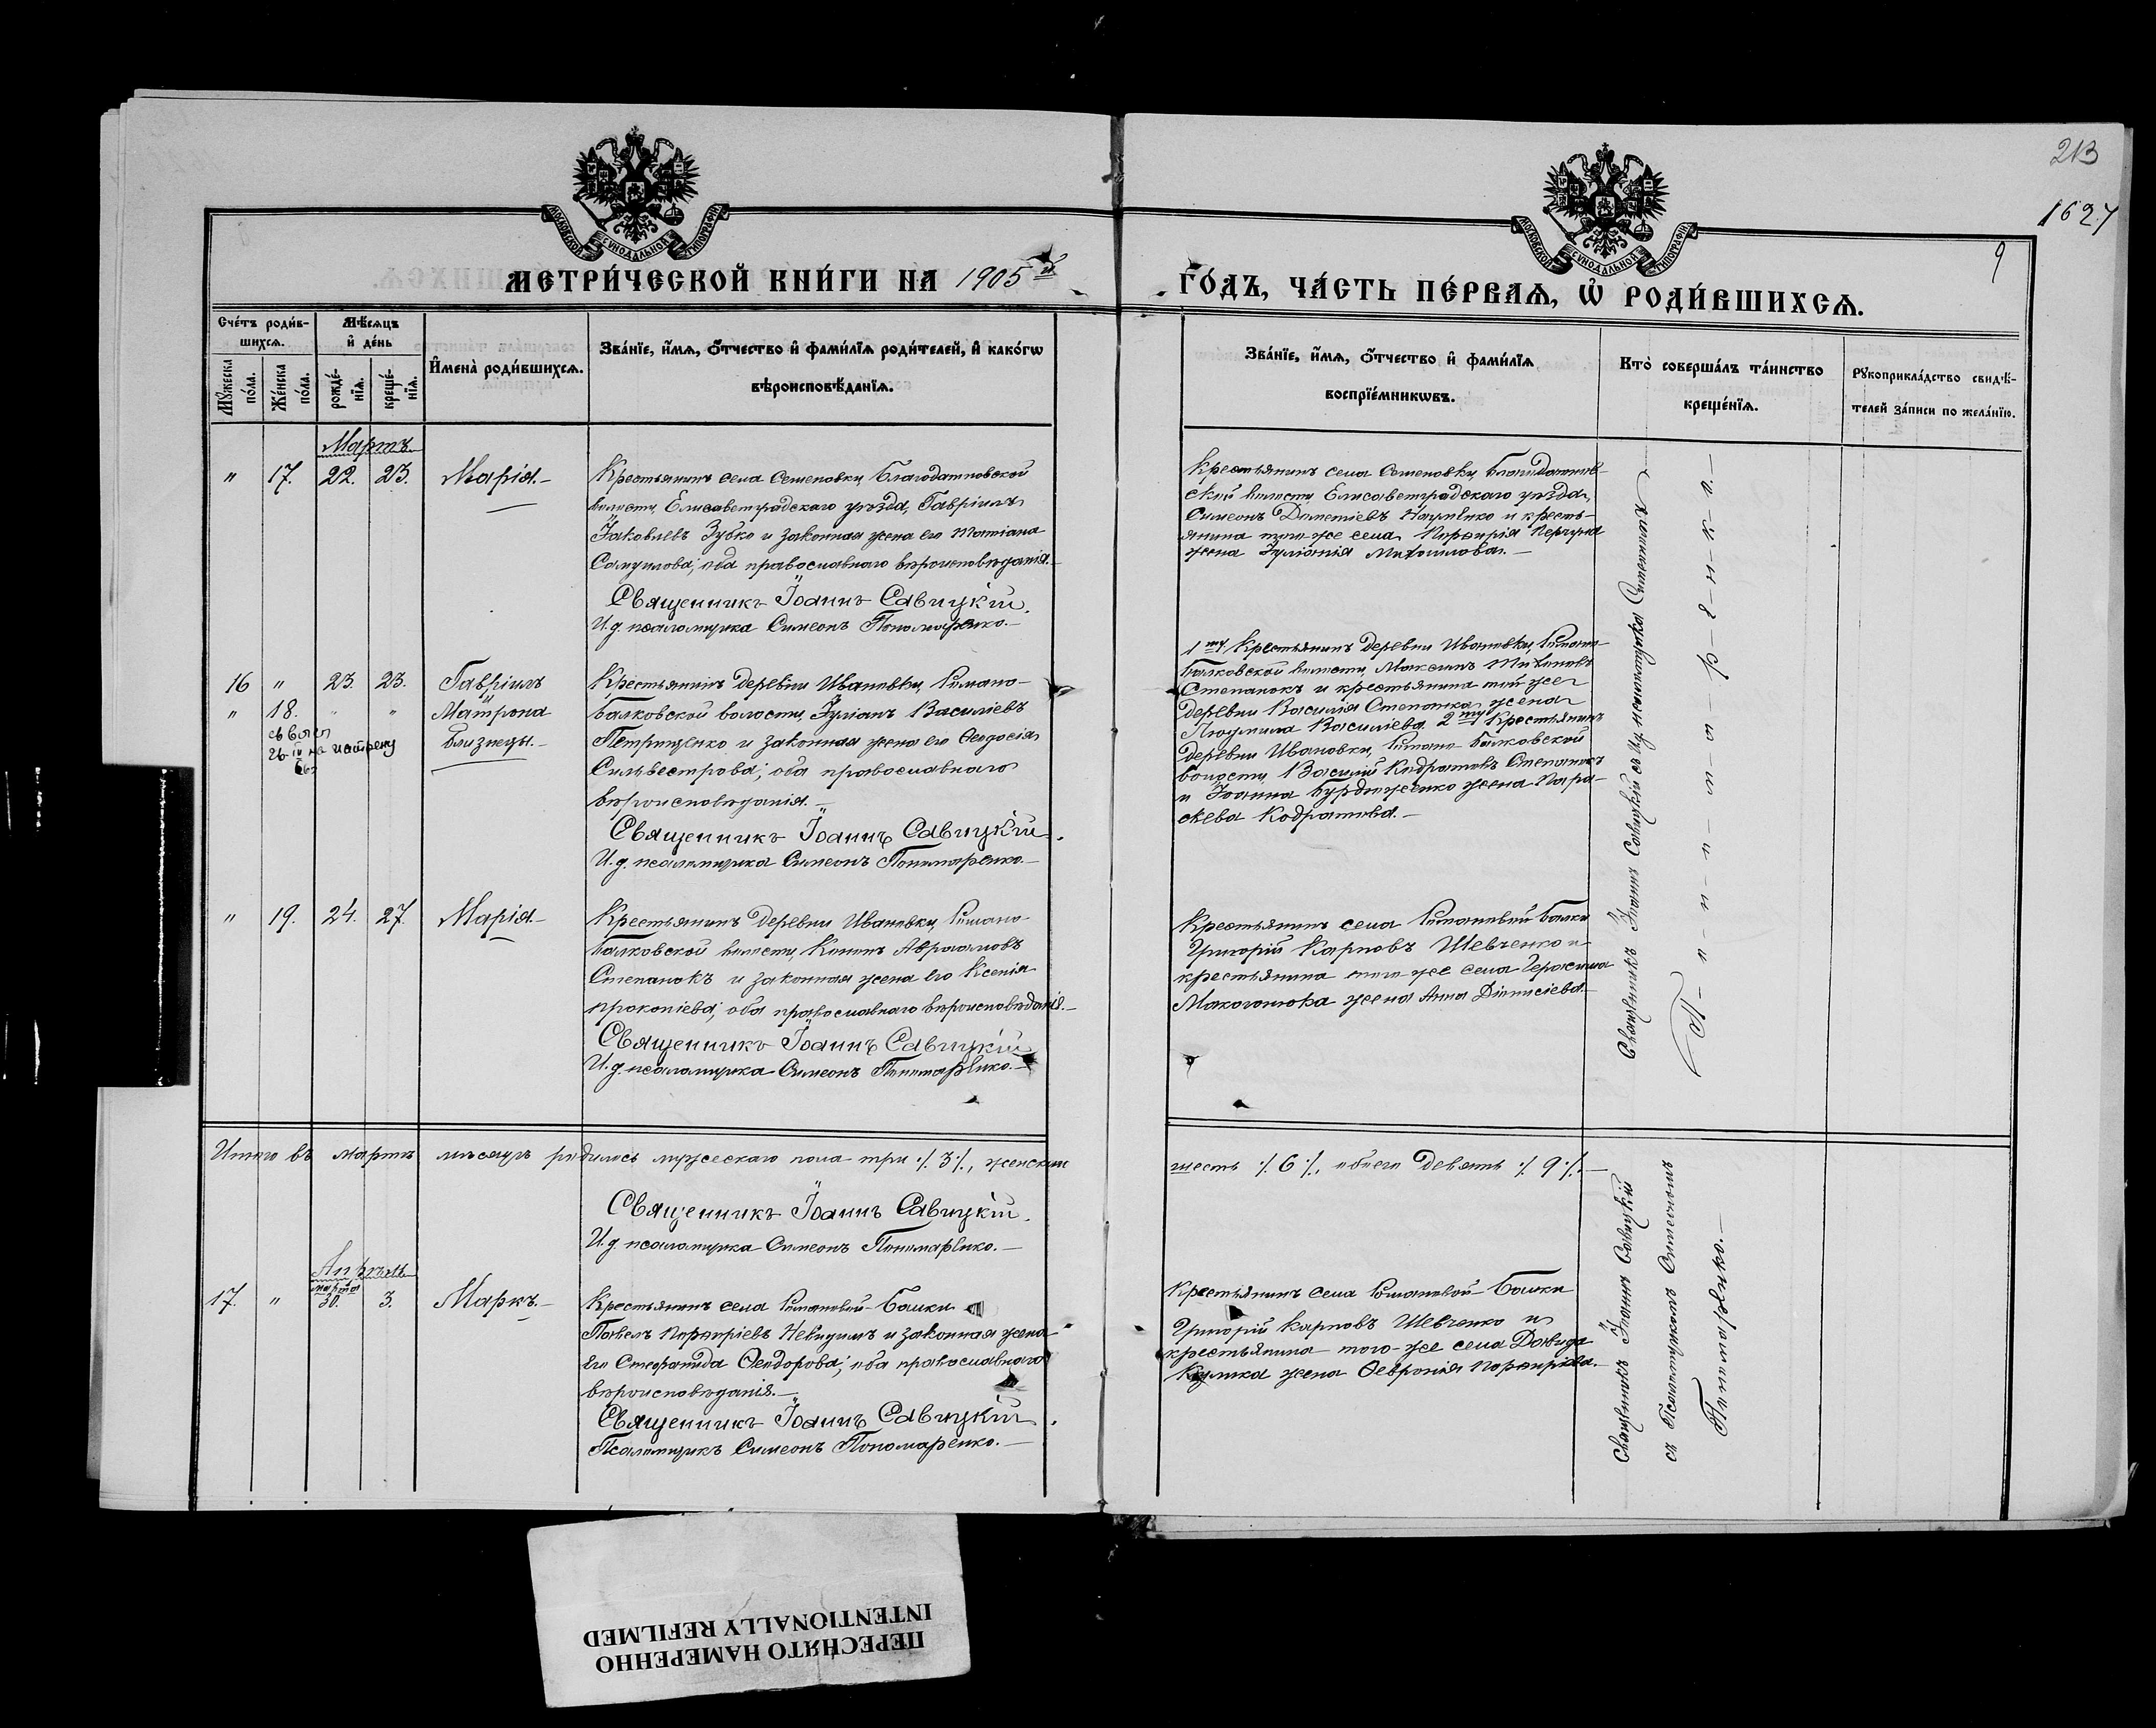 213
1627
9
МОСКОВСКОЙ СѴНОДАЛЬНОЙ ТИПОГРАФІИ
МОСКОВСКОЙ СѴНОДАЛЬНОЙ ТИПОГРАФІИ
МЕТРИ́ЧЕСКОЙ КНИ́ГИ НА 1905й
ГО́ДЪ, ЧА́СТЬ ПЕ́РВАѦ, Ѡ҆ РОДИ́ВШИХСѦ.
Сче́тъ роди́в-
шихсѧ.
Мѣ́сѧцъ
и҆ де́нь
Мꙋ́жеска по́ла.
Же́нска по́ла.
рожде́-
нїѧ.
креще́-
нїѧ.
И҆мена̀ роди́вшихсѧ.
Зва́нїе, и҆́мѧ, ѻ҆́тчество и҆ фами́лїѧ роди́телей, и҆ како́гѡ
вѣроисповѣ́данїѧ.
Зва́нїе, и҆́мѧ, ѻ҆́тчество и҆ фами́лїѧ
воспрїе́мникѡвъ.
Кто̀ соверша́лъ та́инство
креще́нїѧ.
Рꙋкоприкла́дство свидѣ́-
телей за́писи по жела́нїю.
Мартъ
" 17. 22. 23. Марія.-
Крестьянинъ села Семеновки, Благодатновской
волости, Елисаветградскаго уѣзда, Гавріилъ
Іаковлевъ Зубко и законная жена его Татіана
Самуилова; оба православнаго вѣроисповѣданія.
Священникъ Іоаннъ Савицкій.
И. д. псаломщика Симеонъ Пономаренко.-
Крестьянинъ села Семеновки, Благодатнов-
ской волости, Елисаветградскаго уѣзда,
Симеонъ Дометіевъ Науменко и кресть-
янина того-же села Порфирія
жена Іуліанія Михаилова.-
16 " 23. 23. Гавріилъ
" 18. " " Матрона
близнецы.-
Крестьянинъ деревни Ивановки, Романо-
Балковской волости, Іуліанъ Василіевъ
Петрищенко и законная жена его Ѳеодосія
Сильвестрова; оба православнаго
вѣроисповѣданія.-
Священникъ Іоаннъ Савицкій.
И. д. псаломщика Симеонъ Пономаренко.-
1му Крестьянинъ деревни Ивановки, Романо-
Балковской волости, Максимъ Тихоновъ
Степанокъ и крестьянина той же
деревни Василія Степанка жена
Людмила Василіева 2му Крестьянинъ
деревни Ивановки, Романо-Балковской
волости, Василій Кодратовъ Степанокъ
и Іоанна жена Пара-
скева Кодратова.-
" 19. 24. 27. Марія.-
Крестьянинъ деревни Ивановки, Романо-
Балковской волости, Кононъ Авраамовъ
Степанокъ и законная жена его Ксенія
Прокопіева; оба православнаго вѣроисповѣданія.-
Священникъ Іоаннъ Савицкій
И. д. псаломщика Симеонъ Пономаренко.-
Крестьянинъ села Романовой-Балки
Григорій Карповъ Шевченко и
крестьянина того-же села Герасима
жена Анна Діонисіева.-
Священникъ Іоаннъ Савицкій съ И. д. псаломщика Симеономъ
П-о-н-о-м-а-р-е-н-к-о.-
Итого въ мартѣ мѣсяцѣ родилось мужескаго пола три ·/.3·/., женскаго
шесть ·/.6·/., обоего девять ·/.9·/.-
Священникъ Іоаннъ Савицкій.
И. д. псаломщика Симеонъ Пономаренко.-
Апрѣль
марта
17. " 30. 3. Маркъ.-
Крестьянинъ села Романовой-Балки
Павелъ Порфиріевъ Невидимъ и законная жена
его Стефанида Ѳеодорова; оба православнаго
вѣроисповѣданія.-
Священникъ Іоаннъ Савицкій.
Псаломщикъ Симеонъ Пономаренко.-
Крестьянинъ села Романовой-Балки
Григорій Карповъ Шевченко и
крестьянина того-же села Давида
Кулика жена Ѳевронія Порфиріева.-
Священникъ Іоаннъ Савицкій
съ Псаломщикомъ Симеономъ
Пономаренко.-
ПЕРЕСНЯТО НАМЕРЕННО
INTENTIONALLY REFILMED